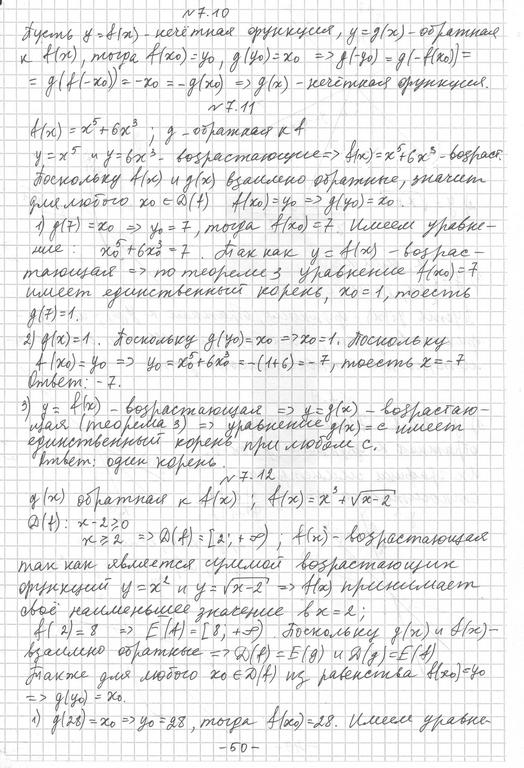 №7.10
Пусть y = f(x) - нечётная функция, y = g(x) - обратная
к f(x), тогда f(x₀) = y₀, g(y₀) = x₀ ⇒ g(-y₀) = g(-f(x₀)) =
= g(f(-x₀)) = -x₀ = -g(x₀) ⇒ g(x) - нечётная функция.
№7.11
f(x) = x⁵ + 6x³ ; g - обратная к f
y = x⁵ и y = 6x³ - возрастающие ⇒ f(x) = x⁵ + 6x³ - возраст.
Поскольку f(x) и g(x) взаимно обратные, значит
для любого x₀ ∈ D(f) f(x₀) = y₀ ⇒ g(y₀) = x₀.
1) g(7) = x₀ ⇒ y₀ = 7, тогда f(x₀) = 7. Имеем уравне-
ние: x₀⁵ + 6x₀³ = 7. Так как y = f(x) - возрас-
тающая ⇒ по теореме 3 уравнение f(x₀) = 7
имеет единственный корень, x₀ = 1, тоесть
g(7) = 1.
2) g(x) = 1. Поскольку g(y₀) = x₀ ⇒ x₀ = 1. Поскольку
f(x₀) = y₀ ⇒ y₀ = x₀⁵ + 6x₀³ = -(1+6) = -7, тоесть x = -7
Ответ: -7.
3) y = f(x) - возрастающая ⇒ y = g(x) - возрастаю-
щая (теорема 3) ⇒ уравнение g(x) = c имеет
единственный корень при любом c.
Ответ: один корень.
№7.12
g(x) обратная к f(x) ; f(x) = x³ + √x-2
D(f): x - 2 ≥ 0
x ≥ 2 ⇒ D(f) = [2; +∞) ; f(x) - возрастающая
так как является суммой возрастающих
функций y = x² и y = √x-2 ⇒ f(x) принимает
своё наименьшее значение в x = 2;
f(2) = 8 ⇒ E(f) = [8; +∞). Поскольку g(x) и f(x) -
взаимно обратные ⇒ D(f) = E(g) и D(g) = E(f)
Также для любого x₀ ∈ D(f) из равенства f(x₀) = y₀
⇒ g(y₀) = x₀.
1) g(28) = x₀ ⇒ y₀ = 28, тогда f(x₀) = 28. Имеем уравне-
- 50 -